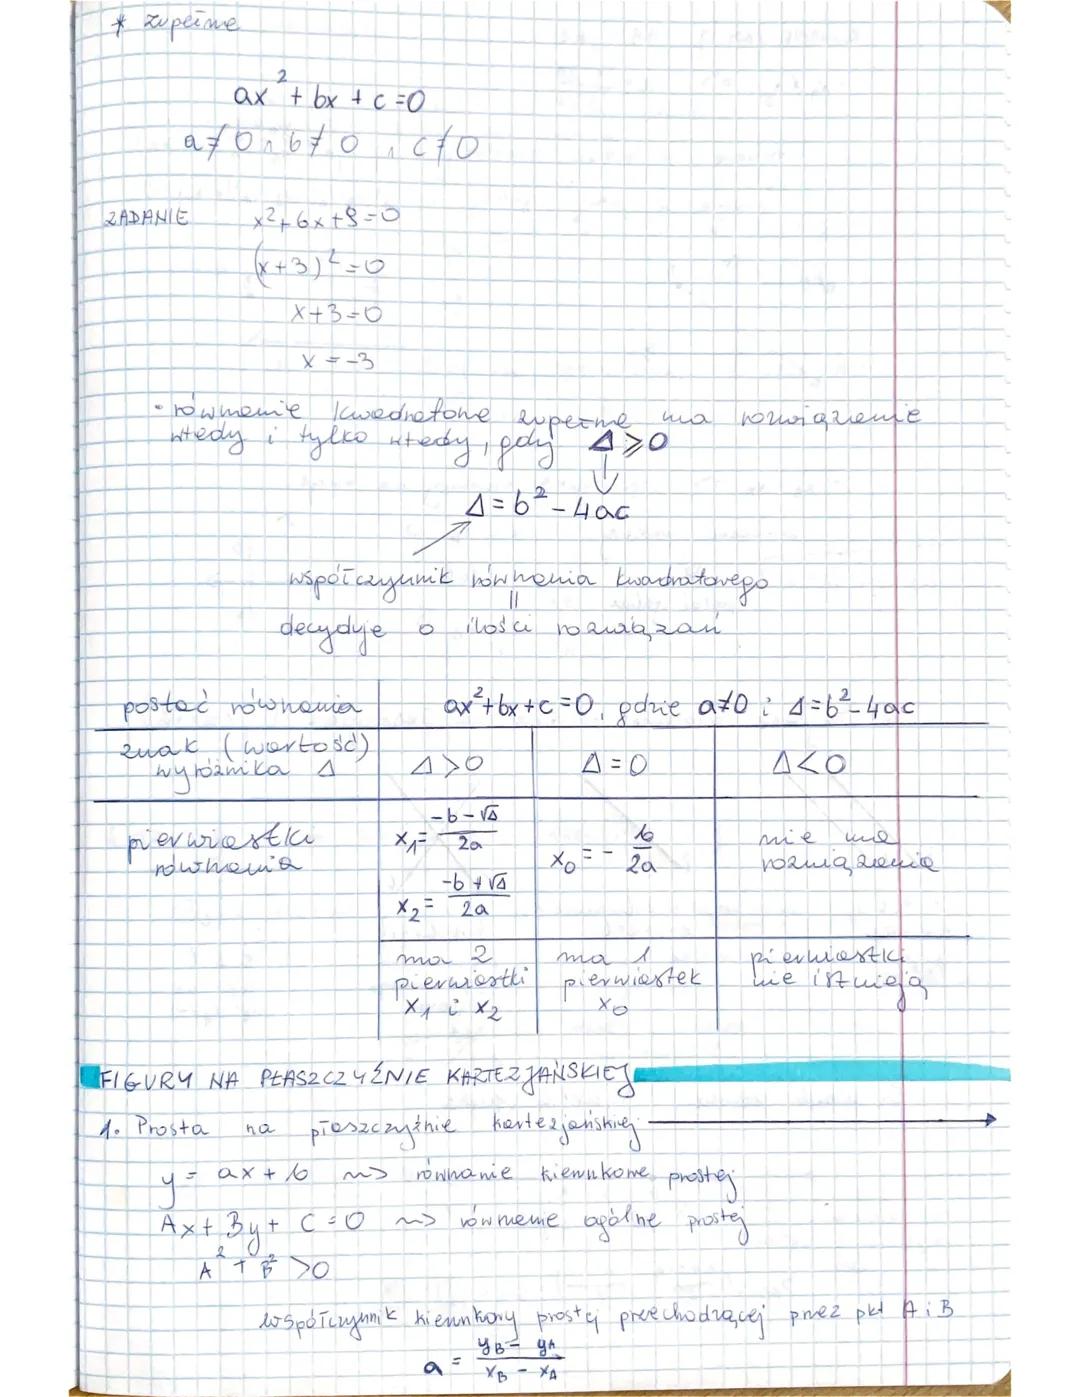 * zupełne
ax² + bx + c = 0
a ≠ 0 ∧ b ≠ 0 ∧ c ≠ 0
ZADANIE x² + 6x + 9 = 0
(x+3)² = 0
x + 3 = 0
x = -3
• równanie kwadratowe zupełne ma rozwiązanie
wtedy i tylko wtedy, gdy Δ ⩾ 0
Δ = b² - 4ac
współczynnik równania kwadratowego
||
decyduje o ilości rozwiązań
postać równania ax² + bx + c = 0, gdzie a ≠ 0 i Δ = b² - 4ac
znak (wartość)
wyróżnika Δ Δ > 0 Δ = 0 Δ < 0
pierwiastki
równania
x₁ = (-b - √Δ) / 2a
x₂ = (-b + √Δ) / 2a
x₀ = - b / 2a
nie ma
rozwiązania
ma 2
pierwiastki
x₁ i x₂
ma 1
pierwiastek
x₀
pierwiastki
nie istnieją
FIGURY NA PŁASZCZYŹNIE KARTEZJAŃSKIEJ
1. Prosta na płaszczyźnie kartezjańskiej →
y = ax + b ~> równanie kierunkowe prostej
Ax + By + C = 0 ~> równanie ogólne prostej
A² + B² > 0
współczynnik kierunkowy prostej przechodzącej przez pkt A i B
a = (y_B - y_A) / (x_B - x_A)